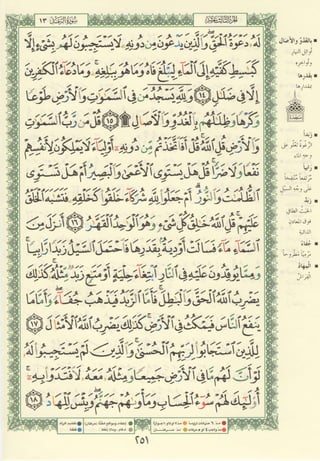 ١٣ سورة الرعد الجزء الثالث عشر
لَهُۥ دَعْوَةُ ٱلْحَقِّ وَٱلَّذِينَ يَدْعُونَ مِن دُونِهِۦ لَا يَسْتَجِيبُونَ لَهُم بِشَىْءٍ إِلَّا
كَبَٰسِطِ كَفَّيْهِ إِلَى ٱلْمَآءِ لِيَبْلُغَ فَاهُ وَمَا هُوَ بِبَٰلِغِهِۦ وَمَا دُعَآءُ ٱلْكَٰفِرِينَ
إِلَّا فِى ضَلَٰلٍ ١٤ وَلِلَّهِ يَسْجُدُ مَن فِى ٱلسَّمَٰوَٰتِ وَٱلْأَرْضِ طَوْعًا
وَكَرْهًا وَظِلَٰلُهُم بِٱلْغُدُوِّ وَٱلْءَاصَالِ ۩ ١٥ قُلْ مَن رَّبُّ ٱلسَّمَٰوَٰتِ
وَٱلْأَرْضِ قُلِ ٱللَّهُ قُلْ أَفَٱتَّخَذْتُم مِّن دُونِهِۦٓ أَوْلِيَآءَ لَا يَمْلِكُونَ لِأَنفُسِهِمْ
نَفْعًا وَلَا ضَرًّا قُلْ هَلْ يَسْتَوِى ٱلْأَعْمَىٰ وَٱلْبَصِيرُ أَمْ هَلْ تَسْتَوِى
ٱلظُّلُمَٰتُ وَٱلنُّورُ أَمْ جَعَلُوا۟ لِلَّهِ شُرَكَآءَ خَلَقُوا۟ كَخَلْقِهِۦ فَتَشَٰبَهَ ٱلْخَلْقُ
عَلَيْهِمْ قُلِ ٱللَّهُ خَٰلِقُ كُلِّ شَىْءٍ وَهُوَ ٱلْوَٰحِدُ ٱلْقَهَّٰرُ ١٦ أَنزَلَ مِنَ
ٱلسَّمَآءِ مَآءً فَسَالَتْ أَوْدِيَةٌۢ بِقَدَرِهَا فَٱحْتَمَلَ ٱلسَّيْلُ زَبَدًا رَّابِيًا
وَمِمَّا يُوقِدُونَ عَلَيْهِ فِى ٱلنَّارِ ٱبْتِغَآءَ حِلْيَةٍ أَوْ مَتَٰعٍ زَبَدٌ مِّثْلُهُۥ كَذَٰلِكَ
يَضْرِبُ ٱللَّهُ ٱلْحَقَّ وَٱلْبَٰطِلَ فَأَمَّا ٱلزَّبَدُ فَيَذْهَبُ جُفَآءً وَأَمَّا مَا
يَنفَعُ ٱلنَّاسَ فَيَمْكُثُ فِى ٱلْأَرْضِ كَذَٰلِكَ يَضْرِبُ ٱللَّهُ ٱلْأَمْثَالَ ١٧
لِلَّذِينَ ٱسْتَجَابُوا۟ لِرَبِّهِمُ ٱلْحُسْنَىٰ وَٱلَّذِينَ لَمْ يَسْتَجِيبُوا۟ لَهُۥ
لَوْ أَنَّ لَهُم مَّا فِى ٱلْأَرْضِ جَمِيعًا وَمِثْلَهُۥ مَعَهُۥ لَٱفْتَدَوْا۟ بِهِۦٓ
أُو۟لَٰٓئِكَ لَهُمْ سُوٓءُ ٱلْحِسَابِ وَمَأْوَىٰهُمْ جَهَنَّمُ وَبِئْسَ ٱلْمِهَادُ ١٨
بالغدو والآصال
أوائل النهار
وأواخره
بقدرها
بمقدارها
زبدا
رابيا
زبد
جفاء
المهاد
٢٥١